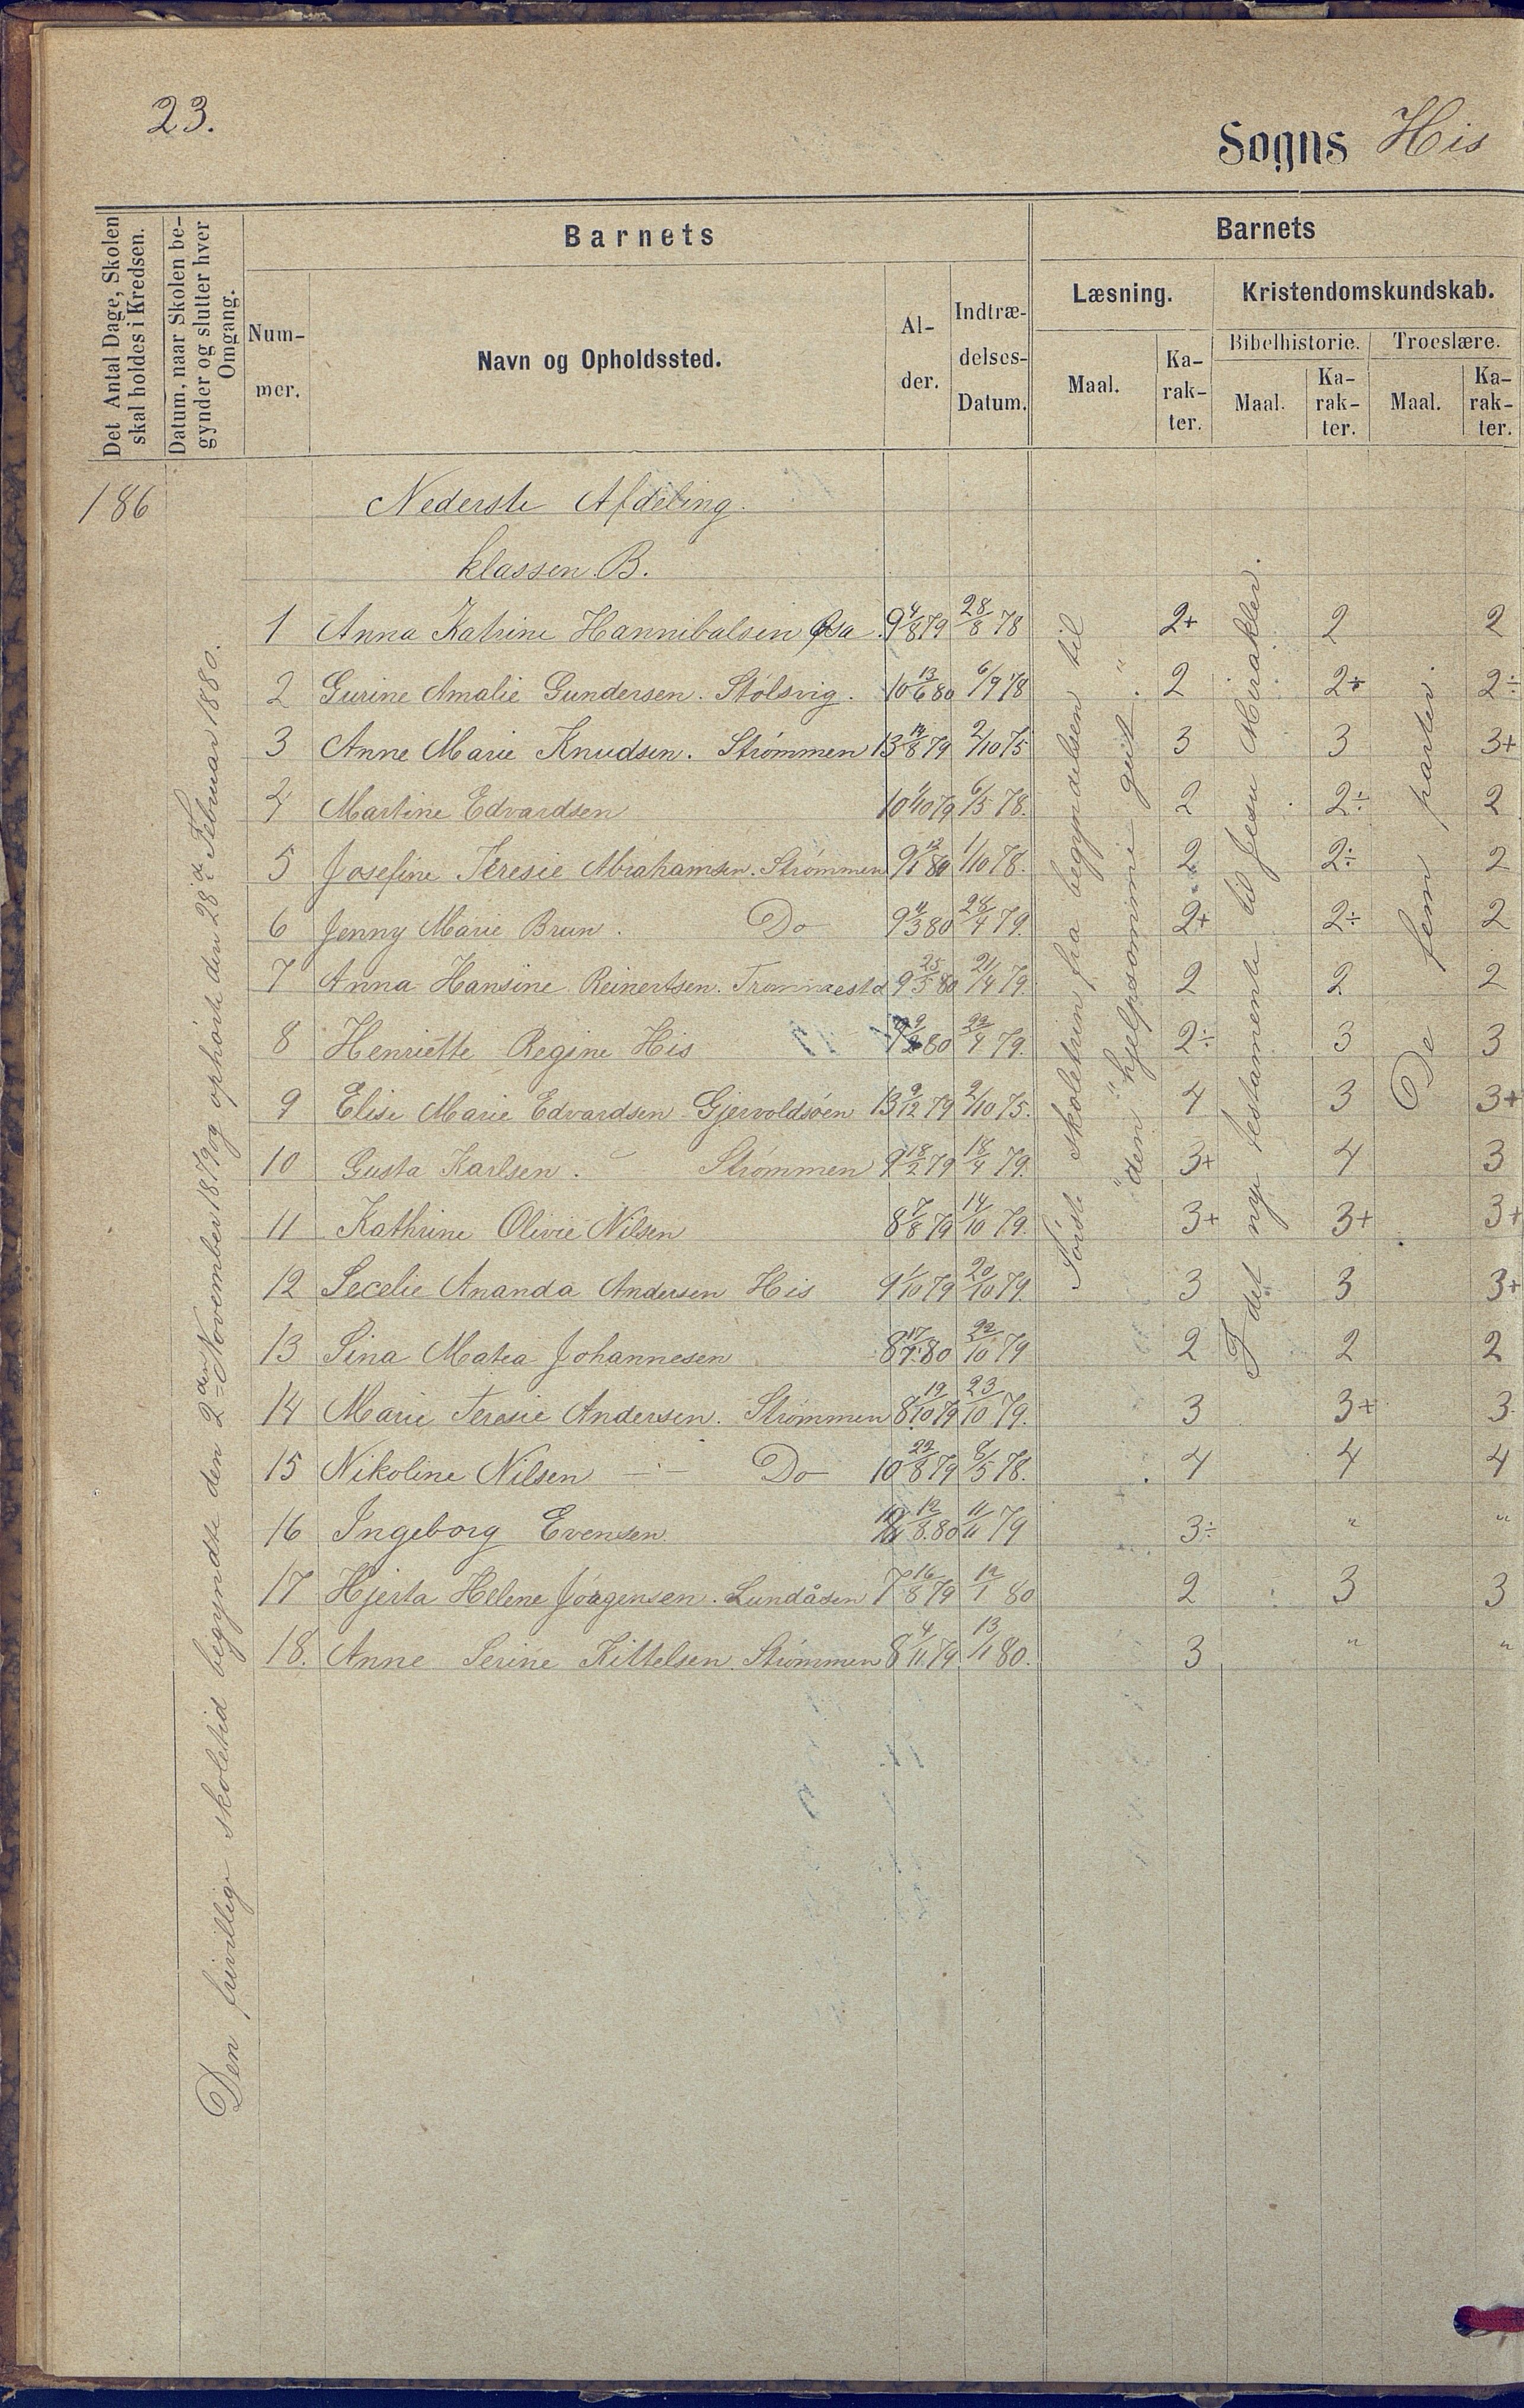 23.
Sogns His
Det Antal Dage, Skolen
skal holdes i Kredsen.
Datum, naar Skolen be-
gynder og slutter hver
Omgang.
Barnets
Num-
mer.
Navn og Opholdssted.
Al-
der.
Indtræ-
delses-
Datum.
Barnets
Læsning.
Maal.
Ka-
rak-
ter.
Kristendomskundskab.
Bibelhistorie.
Maal.
Ka-
rak-
ter.
Troeslære.
Maal.
Ka-
rak-
ter.
186
Nederste Afdeling.
klassen B.
1 Anna Katrine Hannibalsen 9 4/8 79 28/8 78 2+ 2 2
2 Gurine Amalie Gundersen. Stølsvig. 10 13/6 80 6/9 78 2 2÷ 2÷
3 Anne Marie Knudsen. Strømmen 13 14/8 79 2/10 75 3 3 3+
4 Martine Edvardsen 10 79 6/5 78. 2 2÷ 2
5 Josefine Teresie Abrahamsen. Strømmen 9 12/1 80 1/10 78. 2 2÷ 2
6 Jenny Marie Brun. Do 9 11/3 80 28/4 79. 2+ 2÷ 2
7 Anna Hansine Reinertsen. 9 25/5 80 21/4 79. 2 2 2
8 Henriette Regine His 80 22/4 79. 2÷ 3 3
9 Elise Marie Edvardsen Gjervoldsøen 13 9/12 79 2/10 75. 4 3 3+
10 Gusta Karlsen. Strømmen 9 18/2 79 18/4 79. 3+ 4 3
11 Kathrine Olivie Nilsen 8 7/8 79 14/10 79. 3+ 3+ 3+
12 Secelie Ananda Andersen His 9 1/10 79 20/10 79. 3 3 3+
13 Sina Matea Johannesen 8 80 22/10 79 2 2 2
14 Marie Teresie Andersen. Strømmen 8 19/10 79 23/10 79. 3 3+ 3
15 Nikoline Nilsen — — Do 10 22/8 79 8/5 78. 4 4 4
16 Ingeborg Evensen 12/8. 80 11/11 79 3÷ " "
17 Hjerta Helene Jørgensen. Lundåsen 7 16/8 79 12/1 80 2 3 3
18. Anne Serine Kittelsen. Strømmen 8 4/11. 79 13/1 80. 3 " "
Den frivillige skoletid begyndte den 2den November 1879 og ophørte den 28de Februar 1880.
Første skoletrin fra begyndelsen til
" den " hjelpsomme gut. "
I det nye testamente til Jesu Mirakler.
De fem parter.